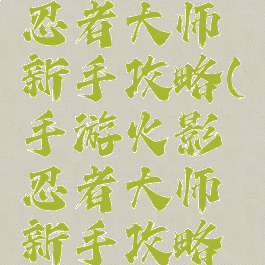 忍者大师
新手攻略(
手游火影
忍者大师
新手攻略